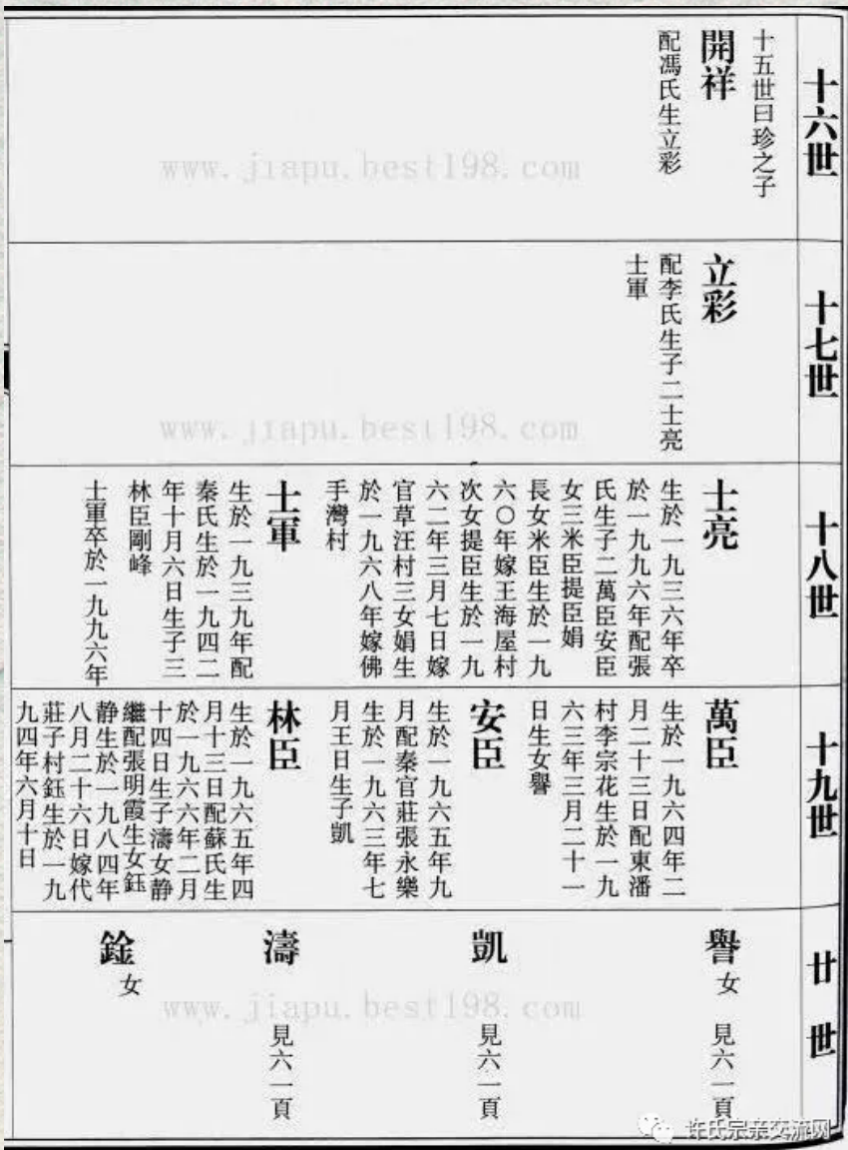 十六世
十五世曰珍之子
開祥
配馮氏生立彩
www.jiapu.best198.com
十七世
立彩
配李氏生子二士亮
士軍
www.jiapu.best198.com
十八世
士亮
生於一九三六年卒
於一九九六年配張
氏生子二萬臣安臣
女三米臣提臣娟
長女米臣生於一九
六〇年嫁王海屋村
次女提臣生於一九
六二年三月七日嫁
官草汪村三女娟生
於一九六八年嫁佛
手灣村
士軍
生於一九三九年配
秦氏生於一九四二
年十月六日生子三
林臣剛峰
士軍卒於一九九六年
十九世
萬臣
生於一九六四年二
月二十三日配東潘
村李宗花生於一九
六三年三月二十一
日生女譽
安臣
生於一九六五年九
月配秦官莊張永樂
生於一九六三年七
月王日生子凱
林臣
生於一九六五年四
月十三日配蘇氏生
於一九六六年二月
十四日生子濤女静
繼配張明霞生女鈺
静生於一九八四年
八月二十六日嫁代
莊子村鈺生於一九
九四年六月十日
廿世
譽女 見六一頁
凱 見六一頁
濤 見六一頁
銓女
www.jiapu.best198.com
许氏宗亲交流网